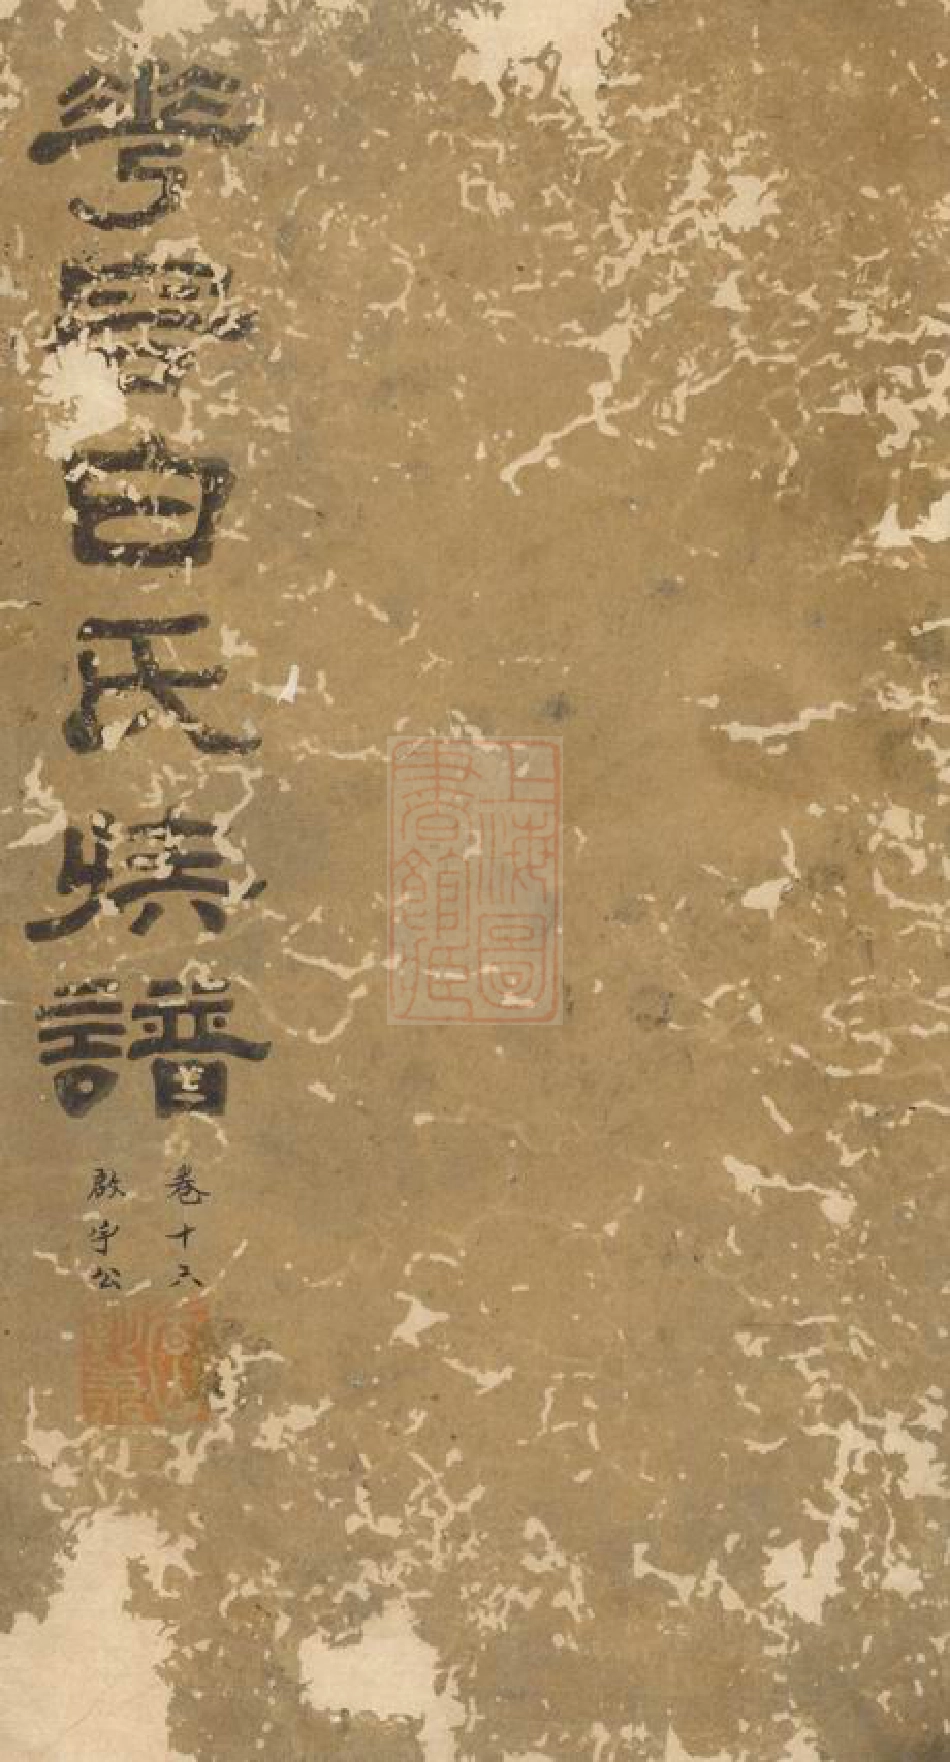 華
白氏族譜
卷十六
啟宇公
上海圖
書館藏